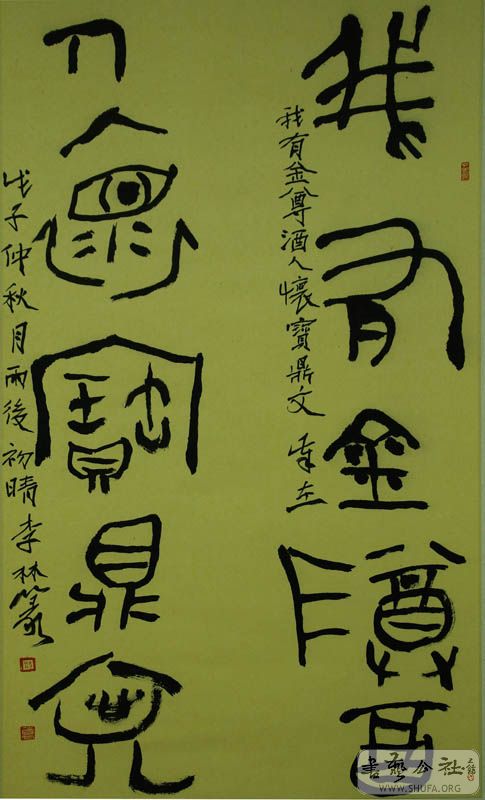 我有金尊酒
我有金尊酒人懷寶鼎文
人懷寶鼎文
戊子仲秋月雨後初晴李林篆
書藝公社
WWW.SHUFA.ORG